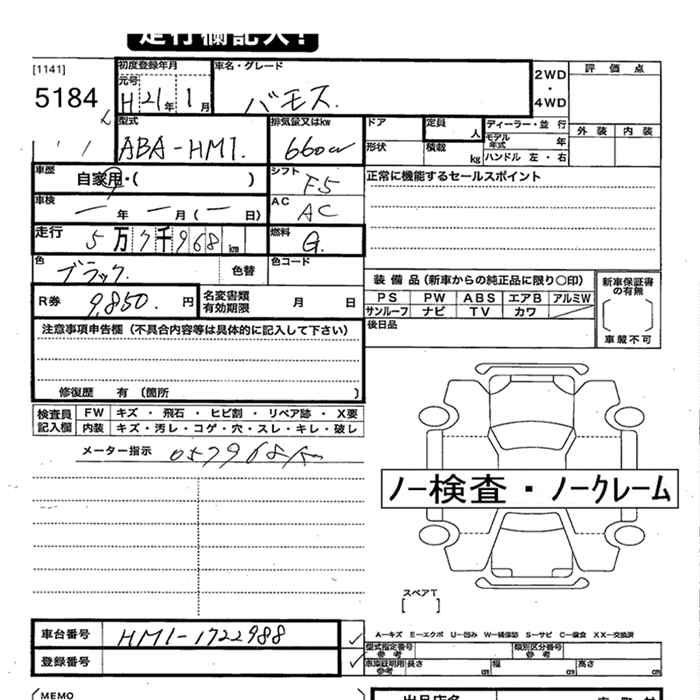 走行欄記入!
[1141]
5184
初度登録年月
元号
H 21年 1月
車名・グレード
バモス.
2WD
・
4WD
評価点
外装 内装
型式
ABA-HM1.
排気量又はkw
660cc
ドア
形状
定員
人
積載
kg
ディーラー・並行
モデル年式 年
ハンドル 左・右
車歴
自家用・( )
シフト
F5
正常に機能するセールスポイント
車検
一年 一月(一日)
AC
AC
走行
5万7千968km
燃料
G.
色
ブラック.
色替
色コード
R券
9,850.円
名変書類
有効期限
月 日
装備品(新車からの純正品に限り○印)
PS PW ABS エアB アルミW
サンルーフ ナビ TV カワ
後日品
新車保証書
の有無
車載不可
注意事項申告欄(不具合内容等は具体的に記入して下さい)
修復歴 有〔箇所 〕
検査員
記入欄
FW キズ・飛石・ヒビ割・リペア跡・X要
内装 キズ・汚レ・コゲ・穴・スレ・キレ・破レ
メーター指示 057968km
ノー検査・ノークレーム
スペアT
[ ]
A-キズ E-エクボ U-凹み W-補修跡 S-サビ C-腐食 XX-交換済
車台番号 HM1-1722988
登録番号
型式指定番号
参考
類別区分番号
参考
車庫証明用
参考
長さ cm 幅 cm 高さ cm
MEMO
出品店名